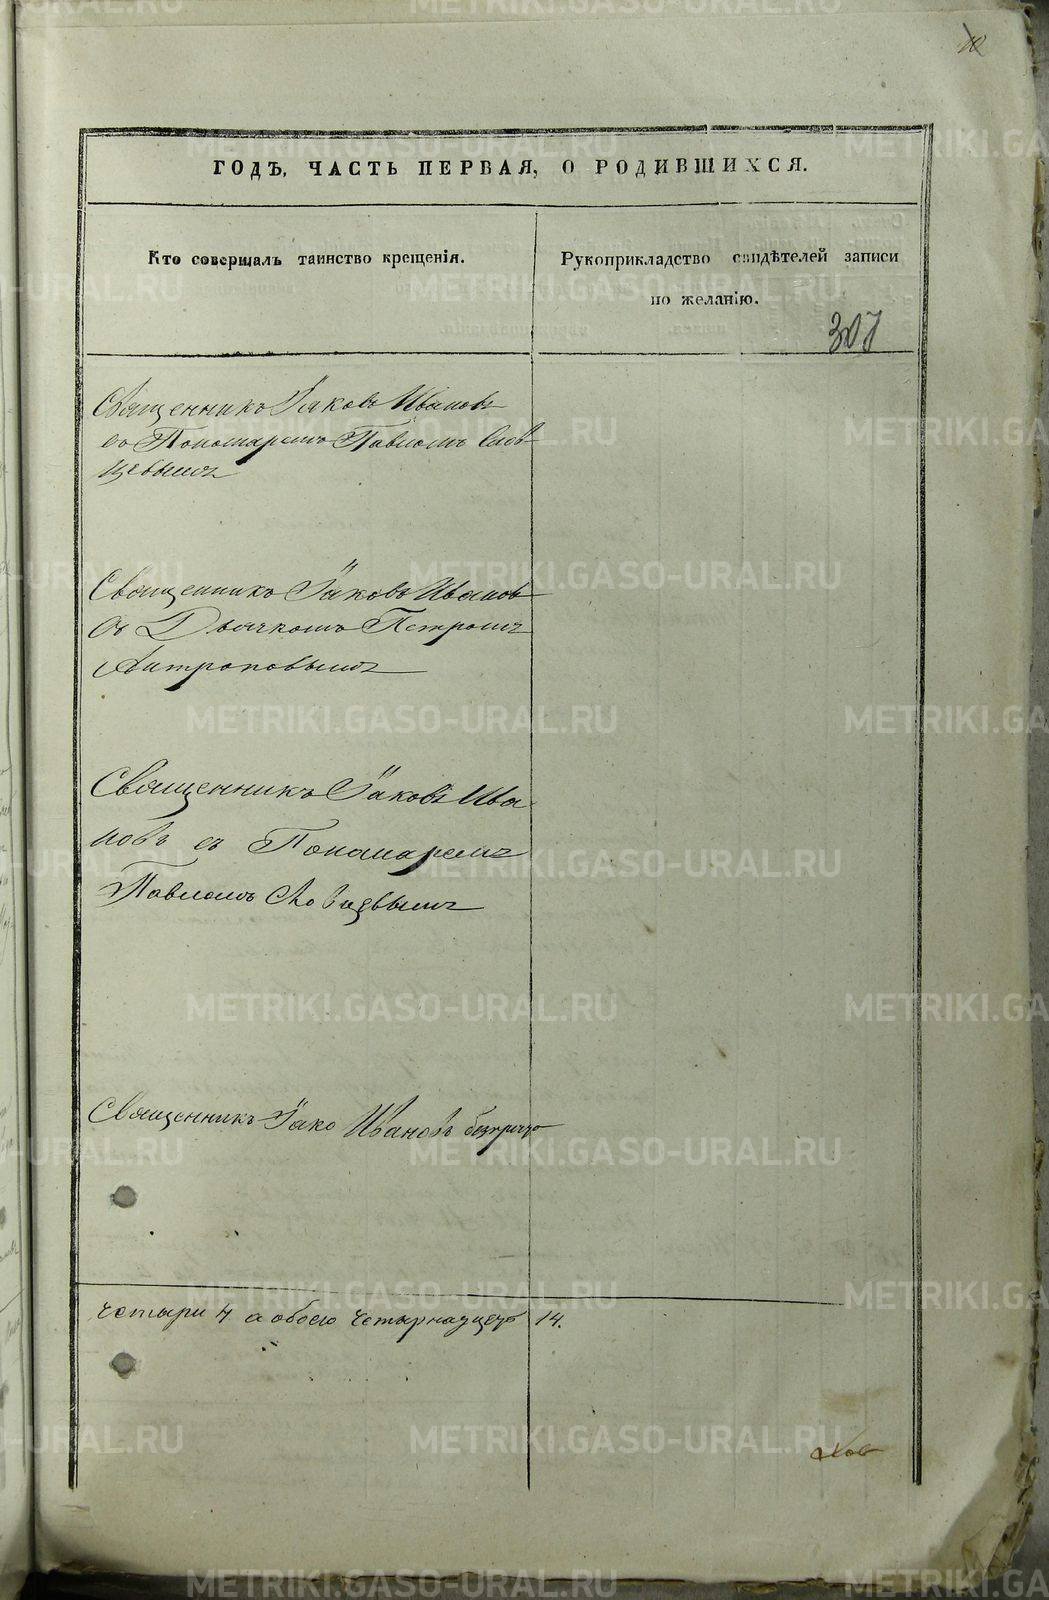 ГОДЪ, ЧАСТЬ ПЕРВАЯ, О РОДИВШИХСЯ.
Кто совершалъ таинство крещенія.
Рукоприкладство свидѣтелей записи
по желанію.
307
Священникъ Іаковъ Ивановъ
съ Пономаремъ Павломъ
Священникъ Іаковъ Ивановъ
съ Дьячкомъ Петромъ
Антроповымъ
Священникъ Іаковъ Ива
новъ съ Пономаремъ
Павломъ
Священникъ Іако Ивановъ
четыри 4 а обоего четырнадцеть 14.
METRIKI.GASO-URAL.RU